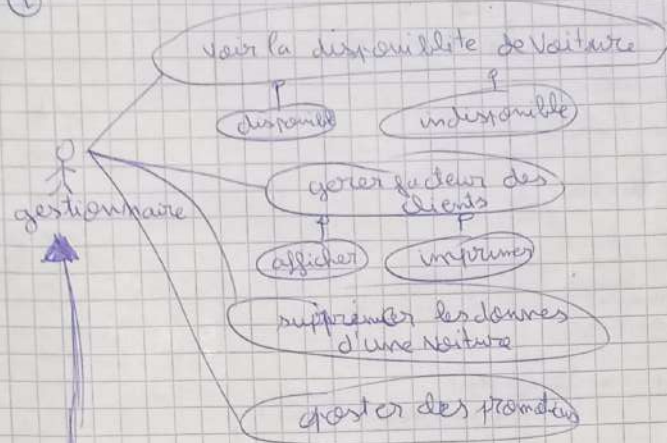 voir la disponiblite de voiture
disponible
indisponible
gestionnaire
gerer facteur des
clients
afficher
imprimer
supprimer les donnes
d'une voiture
poster des